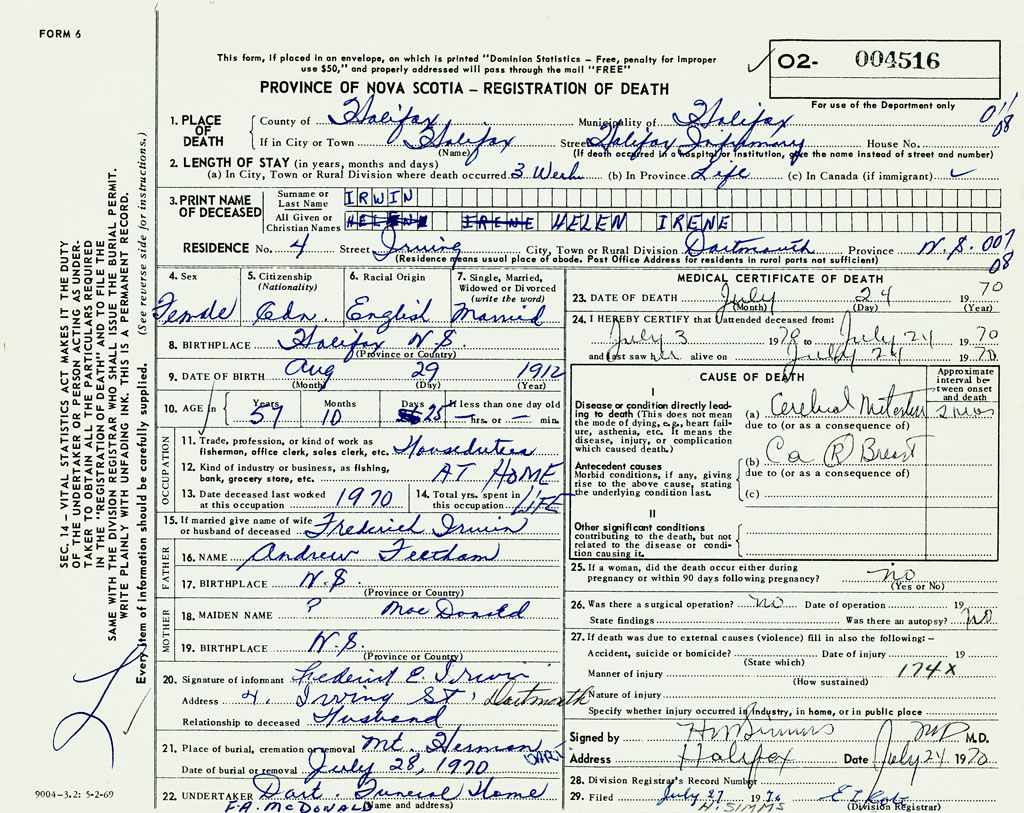 FORM 6
This form, if placed in an envelope, on which is printed "Dominion Statistics – Free, penalty for improper
use $50," and properly addressed will pass through the mail "FREE"
O2- 004516
For use of the Department only
PROVINCE OF NOVA SCOTIA – REGISTRATION OF DEATH
1. PLACE OF DEATH
County of Halifax Municipality of Halifax 011 08
If in City or Town Halifax Street Halifax Infirmary House No.
(Name) (If death occurred in a hospital or institution, give the name instead of street and number)
2. LENGTH OF STAY (in years, months and days)
(a) In City, Town or Rural Division where death occurred 3 Weeks (b) In Province Life (c) In Canada (if immigrant)
3. PRINT NAME OF DECEASED
Surname or Last Name IRWIN
All Given or Christian Names HELEN IRENE HELEN IRENE
RESIDENCE No. 4 Street Irving City, Town or Rural Division Dartmouth Province N.S. 007 08
(Residence means usual place of abode. Post Office Address for residents in rural parts not sufficient)
4. Sex Female
5. Citizenship (Nationality) Cdn.
6. Racial Origin English
7. Single, Married, Widowed or Divorced (write the word) Married
8. BIRTHPLACE Halifax N.S.
(Province or Country)
9. DATE OF BIRTH Aug 29 1912
(Month) (Day) (Year)
10. AGE in Years 57 Months 10 Days 25 If less than one day old – hrs. or – min.
OCCUPATION
11. Trade, profession, or kind of work as
fisherman, office clerk, sales clerk, etc. Houseduties
12. Kind of industry or business, as fishing,
bank, grocery store, etc. AT HOME
13. Date deceased last worked
at this occupation 1970
14. Total yrs. spent in
this occupation LIFE
15. If married give name of wife
or husband of deceased Frederick Irwin
FATHER
16. NAME Andrew Feetham
17. BIRTHPLACE N.S.
(Province or Country)
MOTHER
18. MAIDEN NAME ? MacDonald
19. BIRTHPLACE N.S.
(Province or Country)
20. Signature of informant Frederick E. Irwin
Address 4. Irving St. Dartmouth
Relationship to deceased Husband
21. Place of burial, cremation or removal Mt. Herman DART
Date of burial or removal July 28, 1970
22. UNDERTAKER Dart. Funeral Home
(Name and address)
F.A. MCDONALD
MEDICAL CERTIFICATE OF DEATH
23. DATE OF DEATH July 24 1970
(Month) (Day) (Year)
24. I HEREBY CERTIFY that I attended deceased from:
July 3 1970 to July 24 1970
and last saw her alive on July 24 1970
CAUSE OF DEATH
Approximate interval between onset and death
I
Disease or condition directly leading to death (This does not mean the mode of dying, e.g., heart failure, asthenia, etc. It means the disease, injury, or complication which caused death.)
(a) Cerebral Metastases
due to (or as a consequence of)
Antecedent causes
Morbid conditions, if any, giving rise to the above cause, stating the underlying condition last.
(b) Ca R Breast
due to (or as a consequence of)
(c)
II
Other significant conditions
contributing to the death, but not related to the disease or condition causing it.
25. If a woman, did the death occur either during
pregnancy or within 90 days following pregnancy? no
(Yes or No)
26. Was there a surgical operation? no Date of operation 19
State findings Was there an autopsy? no
27. If death was due to external causes (violence) fill in also the following: –
Accident, suicide or homicide? Date of injury 19
(State which)
Manner of injury 174X
(How sustained)
Nature of injury
Specify whether injury occurred in industry, in home, or in public place
Signed by MD M.D.
Address Halifax Date July 24 1970
28. Division Registrar's Record Number
29. Filed July 27 1970
H. SIMMS (Division Registrar)
SEC. 14 – VITAL STATISTICS ACT MAKES IT THE DUTY
OF THE UNDERTAKER OR PERSON ACTING AS UNDER-
TAKER TO OBTAIN ALL THE PARTICULARS REQUIRED
IN THE "REGISTRATION OF DEATH" AND TO FILE THE
SAME WITH THE DIVISION REGISTRAR WHO SHALL ISSUE THE BURIAL PERMIT.
WRITE PLAINLY WITH UNFADING INK. THIS IS A PERMANENT RECORD.
Every item of information should be carefully supplied. (See reverse side for instructions.)
9004-3.2: 5-2-69